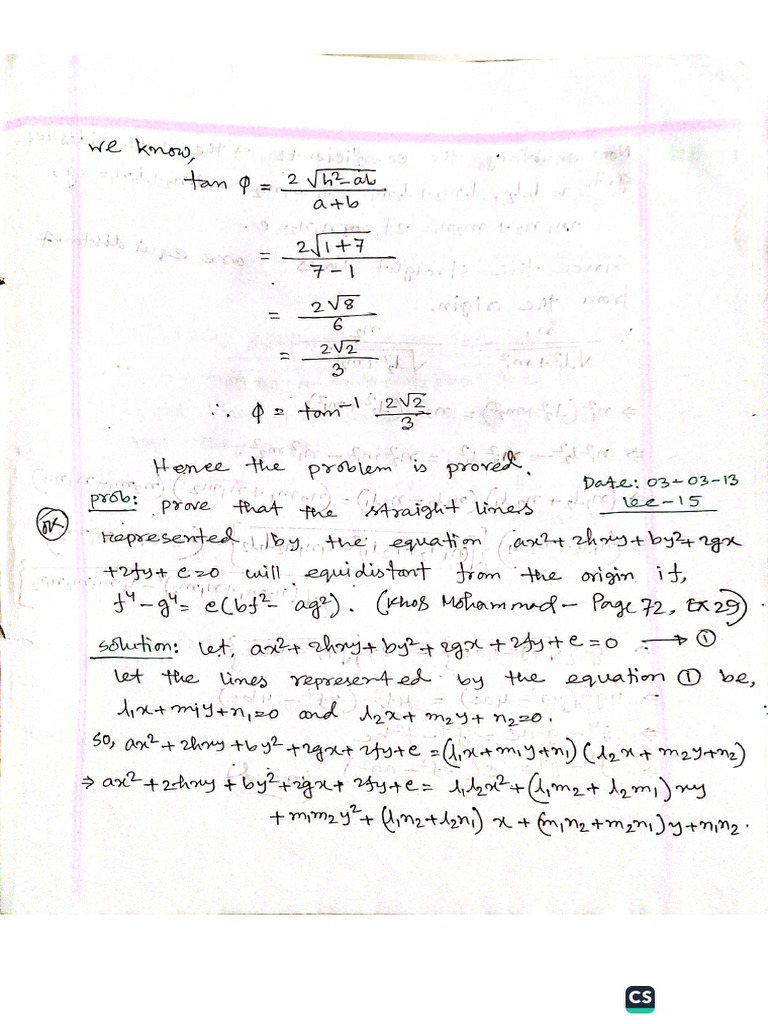 we know,
tan φ = 2√h²-ab / a+b
= 2√1+7 / 7-1
= 2√8 / 6
= 2√2 / 3
∴ φ = tan⁻¹ 2√2 / 3
Hence the problem is proved.
Date: 03-03-13
Lec-15
prob: prove that the straight lines
OK
represented by the equation ax²+2hxy+by²+2gx
+2fy+c=0 will equidistant from the origin if,
f⁴-g⁴= c(bf²-ag²). (Khos Mohammad - Page 72, Ex 29)
solution: Let, ax²+2hxy+by²+2gx+2fy+c=0 → ①
Let the lines represented by the equation ① be,
l₁x+m₁y+n₁=0 and l₂x+m₂y+n₂=0.
so, ax²+2hxy+by²+2gx+2fy+c=(l₁x+m₁y+n₁)(l₂x+m₂y+n₂)
⇒ ax²+2hxy+by²+2gx+2fy+c= l₁l₂x²+(l₁m₂+l₂m₁)xy
+m₁m₂y²+(l₁n₂+l₂n₁)x+(m₁n₂+m₂n₁)y+n₁n₂.
CS